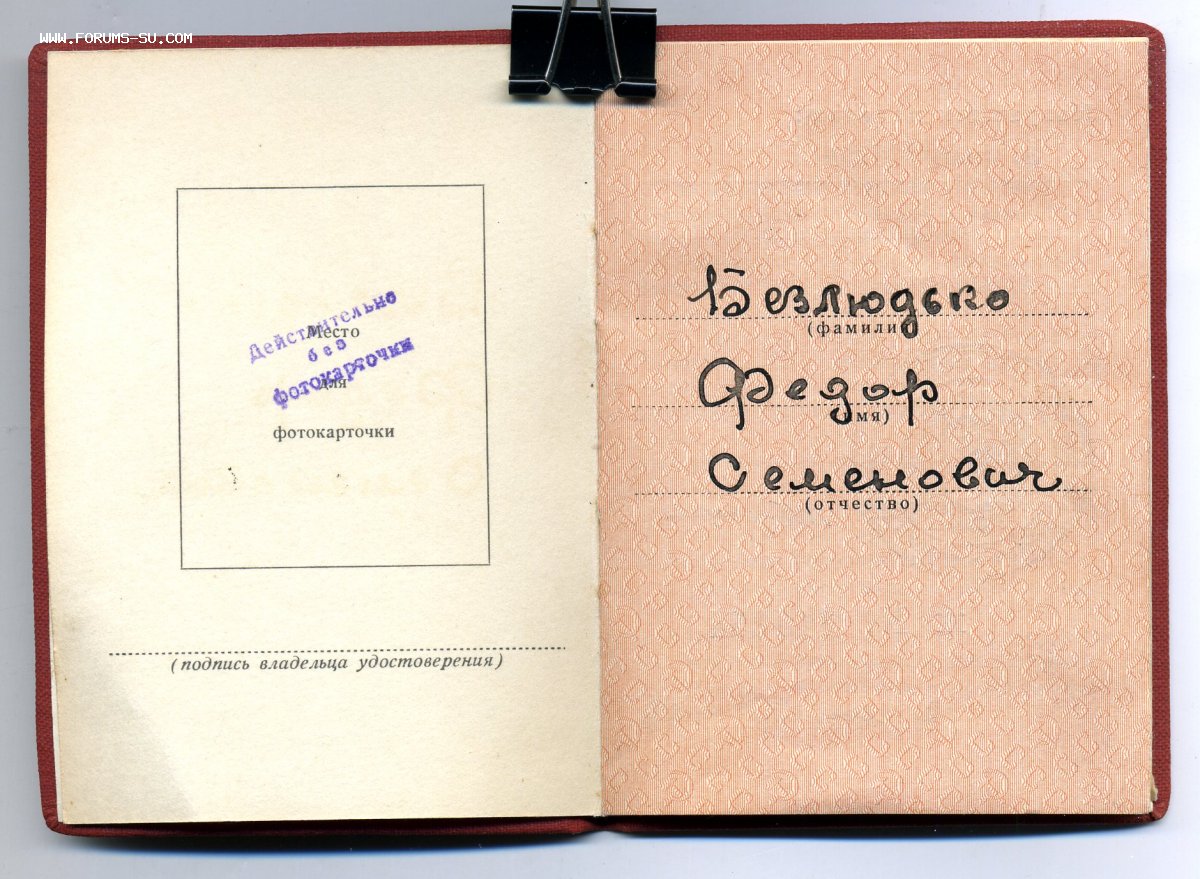 WWW.FORUMS-SU.COM
Действительно
без
фотокарточки
Место
для
фотокарточки
(подпись владельца удостоверения)
Безлюдько
(фамилия)
Федор
(имя)
Семенович
(отчество)